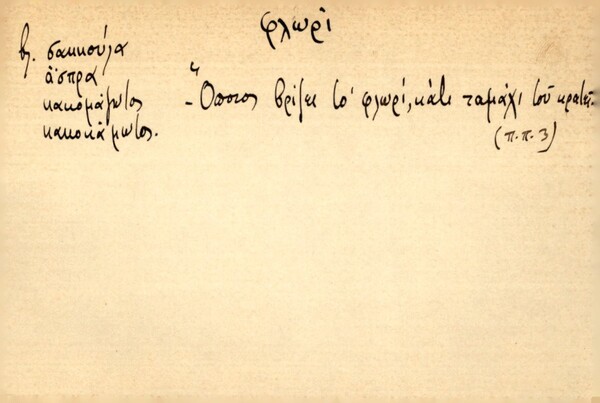 φλωρὶ
βλ. σακκούλα
ἄσπρα
κακομάζωτος
κακοκάμωτος.
- Ὅποιος βρίζει το' φλωρί, κάτι ταμάχι τοῦ κρατεῖ.-
(π.π. 3)